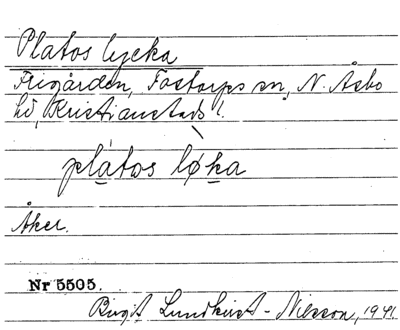 Platos lycka
Frigården, Fastarps sn, N. Åsbo
hd, Kristianstads l.
plátos løka
Åker.
Nr 5505.
Birgit Lundkvist-Nilsson, 1941.